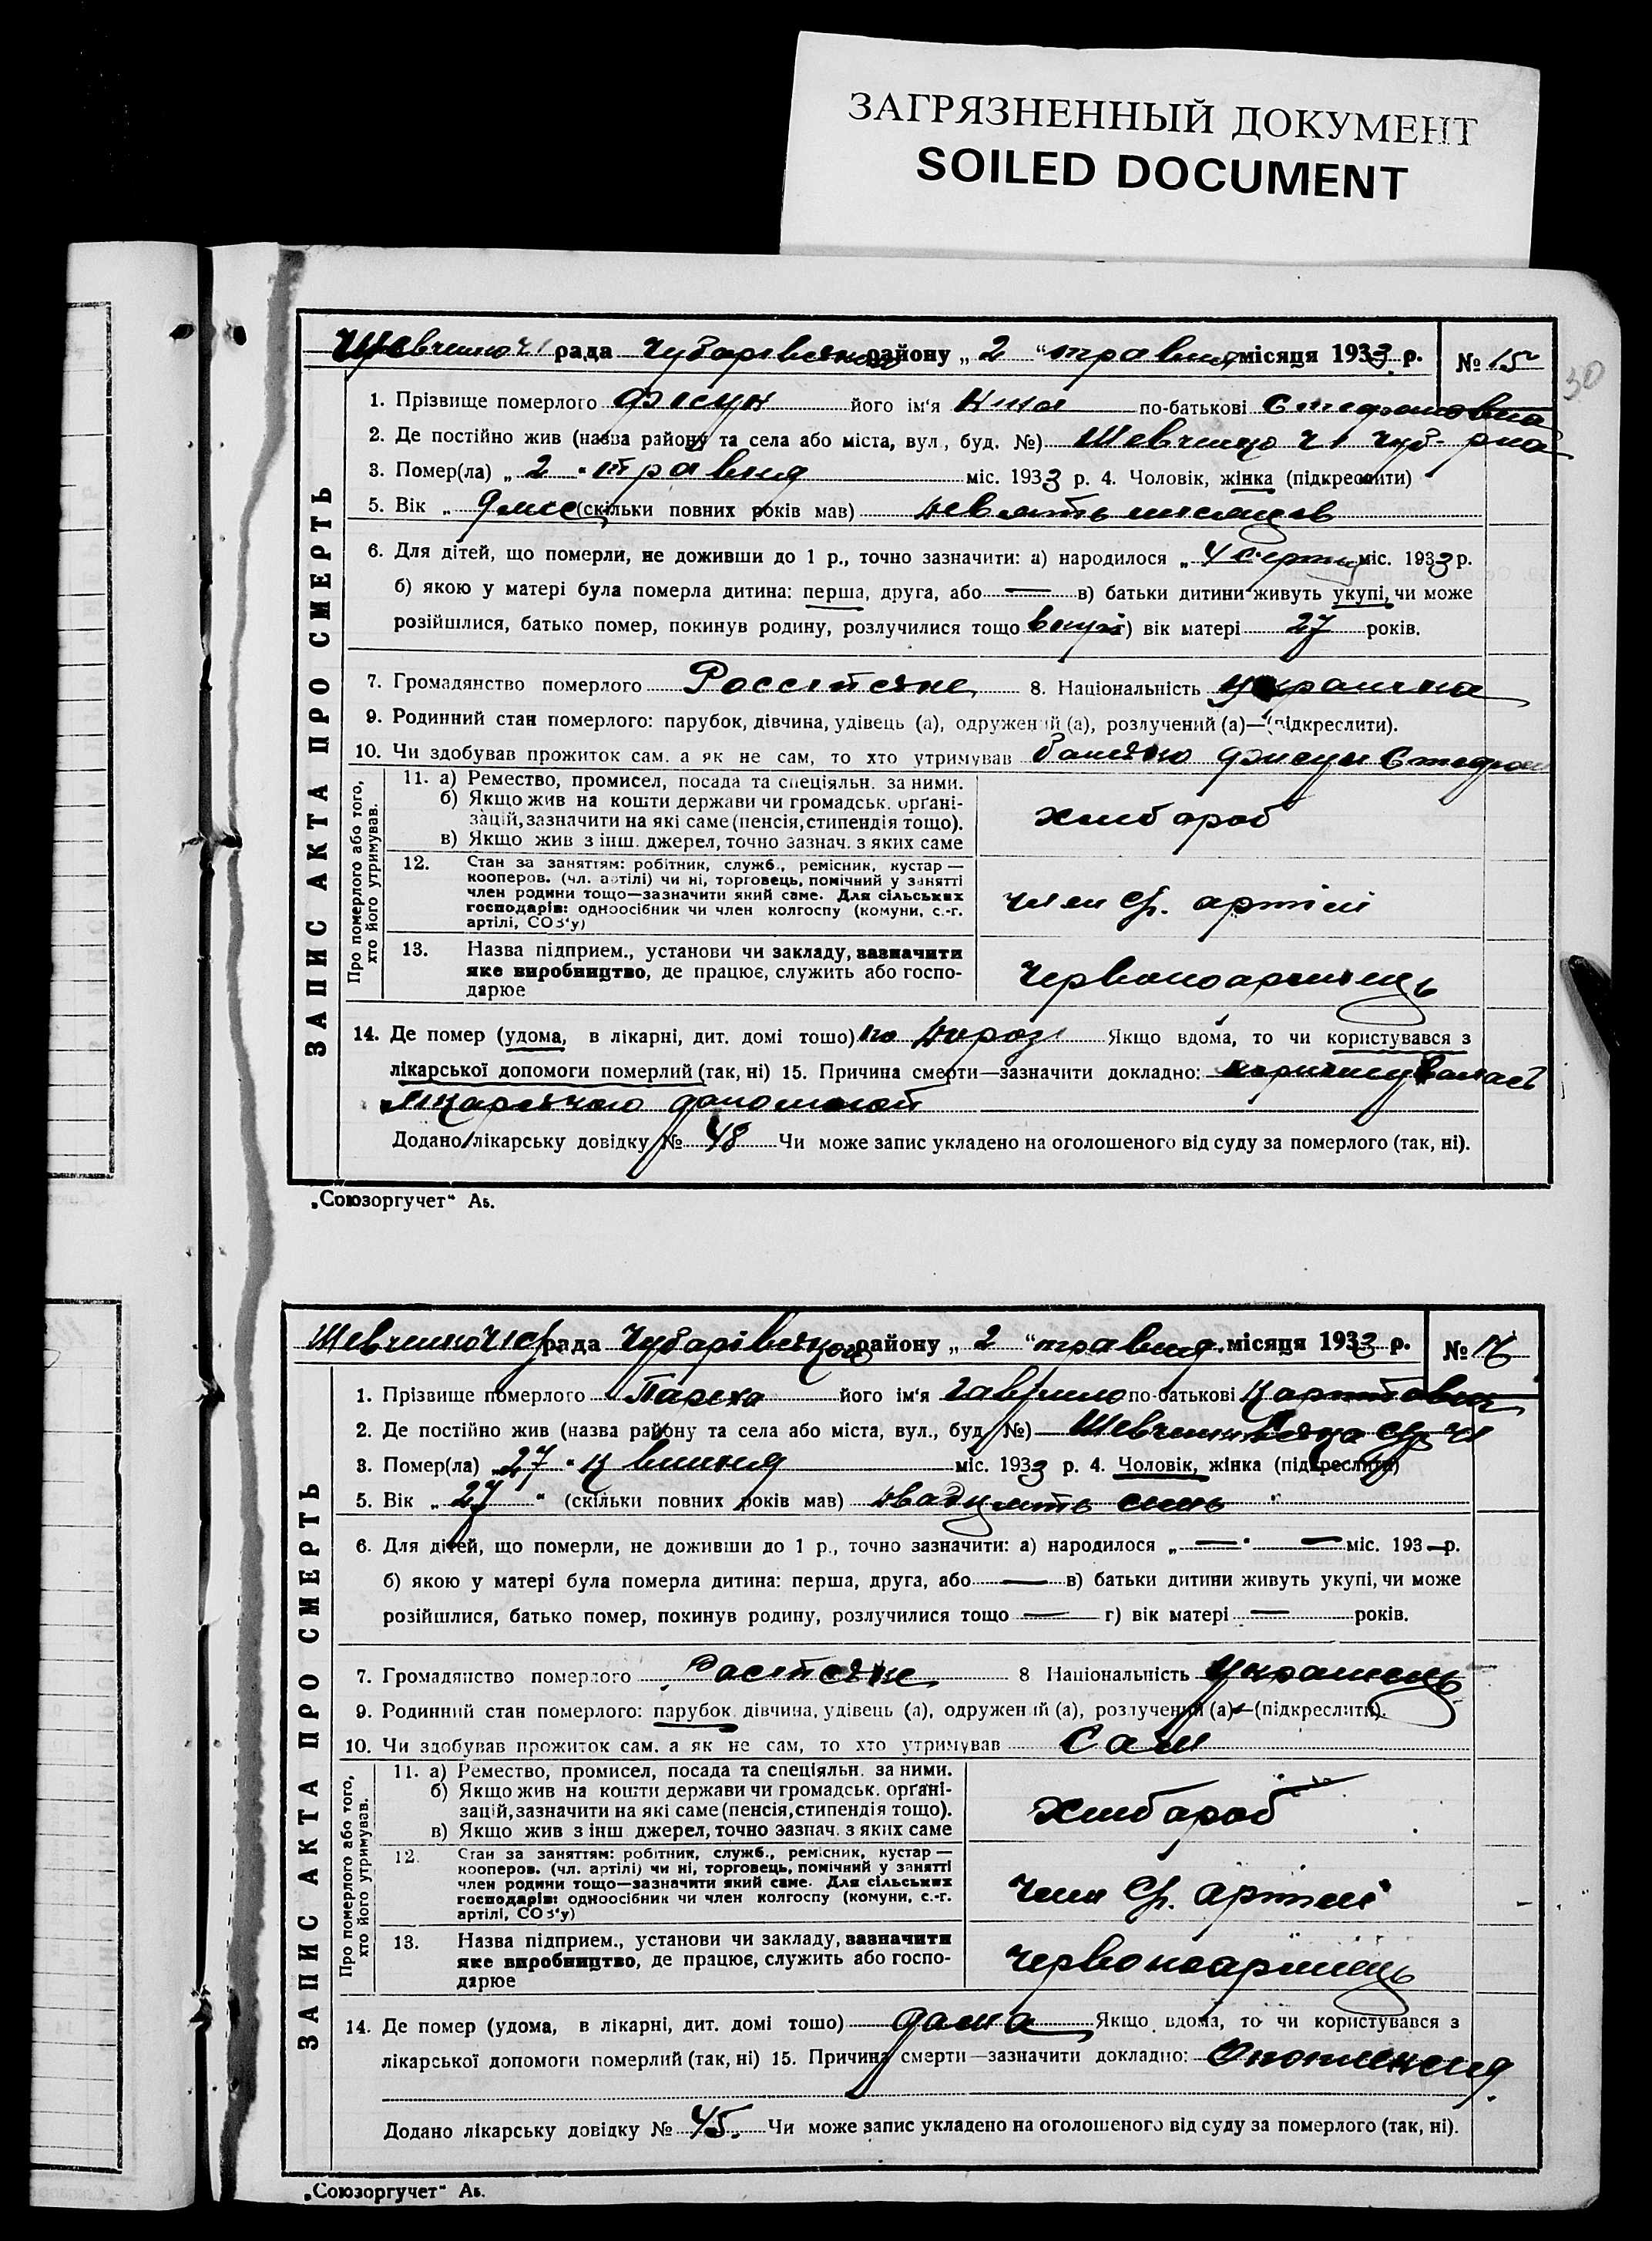 ЗАГРЯЗНЕННЫЙ ДОКУМЕНТ
SOILED DOCUMENT
30
Шевченко ч1 рада Чубарівського району „ 2 “ травня місяця 1933 р. № 15
ЗАПИС АКТА ПРО СМЕРТЬ
1. Прізвище померлого Фесун його ім‘я Нина по-батькові Стефановна
2. Де постійно жив (назва району та села або міста, вул, буд. №) Шевченко ч 1 Чуб- рна
3. Помер(ла) „ 2 “ травня міс. 1933 р. 4. Чоловік, жінка (підкреслити)
5. Вік „ 9 міс (скільки повних років мав) девʼять месяцев
6. Для дітей, що померли, не доживши до 1 р., точно зазначити: а) народилося „ 4 серпня міс. 1933 р.
б) якою у матері була померла дитина: перша, друга, або — в) батьки дитини живуть укупі, чи може
розійшлися, батько помер, покинув родину, розлучилися тощо вкупі г) вік матері 27 років.
7. Громадянство померлого Россійське 8. Національність Українка
9. Родинний стан померлого: парубок, дівчина, удівець (а), одружений (а), розлучений (а)—(підкреслити).
10. Чи здобував прожиток сам. а як не сам, то хто утримував батько Фесун Стефан
Про померлого або того,
хто його утримував.
11. а) Ремество, промисел, посада та спеціяльн. за ними.
б) Якщо жив на кошти держави чи громадськ. орґані-
зацій, зазначити на які саме (пенсія, стипендія тощо).
в) Якщо жив з інш. джерел, точно зазнач. з яких саме
хлібороб
12. Стан за заняттям: робітник, служб., ремісник, кустар —
кооперов. (чл. артілі) чи ні, торговець, помічний у занятті
член родини тощо—зазначити який саме. Для сільських
господарів: одноосібник чи член колгоспу (комуни, с.-г.
артілі, СОЗ‘у)
член ср. артілі
13. Назва підприєм., установи чи закладу, зазначити
яке виробництво, де працює, служить або госпо-
дарює
Червоноармієць
14. Де помер (удома, в лікарні, дит. домі тошо) по дорозі Якщо вдома, то чи користувався з
лікарської допомоги померлий (так, ні) 15. Причина смерти—зазначити докладно: користувалась
лікарською допомогой
Додано лікарську довідку № 48 Чи може запис укладено на оголошеного від суду за померлого (так, ні).
„Союзоргучет“ Аь.
Шевченко ч1 ср рада Чубарівського району „ 2 “ травня місяця 1933 р. № 16
ЗАПИС АКТА ПРО СМЕРТЬ
1. Прізвище померлого його ім‘я Гаврило по-батькові
2. Де постійно жив (назва району та села або міста, вул., буд. №) Шевченківська ср ч1
3. Помер(ла) „ 27 “ квітня міс. 1933 р. 4. Чоловік, жінка (підкреслити)
5. Вік „ 27 “ (скільки повних років мав) двадцять сімь
6. Для дітей, що померли, не доживши до 1 р., точно зазначити: а) народилося „ — “ — міс. 193— р.
б) якою у матері була померла дитина: перша, друга, або — в) батьки дитини живуть укупі, чи може
розійшлися, батько помер, покинув родину, розлучилися тощо — г) вік матері — років.
7. Громадянство померлого Расійське 8 Національність Українець
9. Родинний стан померлого: парубок, дівчина, удівець (а), одружений (а), розлучений (а)—(підкреслити).
10. Чи здобував прожиток сам. а як не сам, то хто утримував Сам
Про померлого або того,
хто його утримував.
11. а) Ремество, промисел, посада та спеціяльн. за ними.
б) Якщо жив на кошти держави чи громадськ. орґані-
зацій, зазначити на які саме (пенсія, стипендія тощо).
в) Якщо жив з інш джерел, точно зазнач. з яких саме
хлібороб
12. Стан за заняттям: робітник, служб., ремісник, кустар —
кооперов. (чл. артілі) чи ні, торговець, помічний у занятті
член родини тощо—зазначити який саме. Для сільських
господарів: одноосібник чи член колгоспу (комуни, с.-г.
артілі, СОЗ‘у)
член ср. артілі
13. Назва підприєм., установи чи закладу, зазначити
яке виробництво, де працює, служить або госпо-
дарюе
Червоноармієць
14. Де помер (удома, в лікарні, дит. домі тошо) дома Якщо вдома, то чи користувався з
лікарської допомоги померлий (так, ні) 15. Причина смерти—зазначити докладно:
Додано лікарську довідку № 45. Чи може запис укладено на оголошеного від суду за померлого (так, ні).
„Союзоргучет“ Аь.